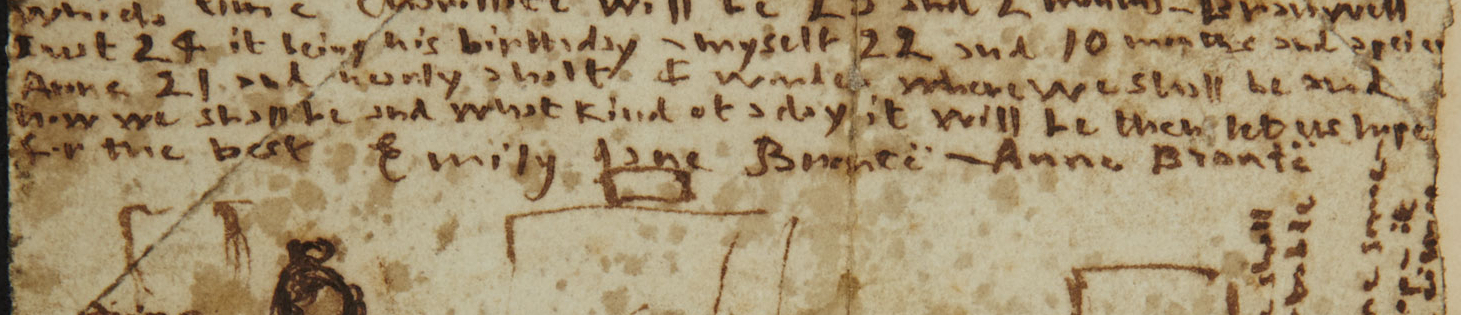 which time Charlotte will be 25 and 2 months - Branwell
Just 24 it being his birthday - myself 22 and 10 months and a peice
Anne 21 and nearly a half I wonder where we shall be and
how we shall be and what kind of a day it will be then let us hope
for the best Emily Jane Brontë - Anne Brontë